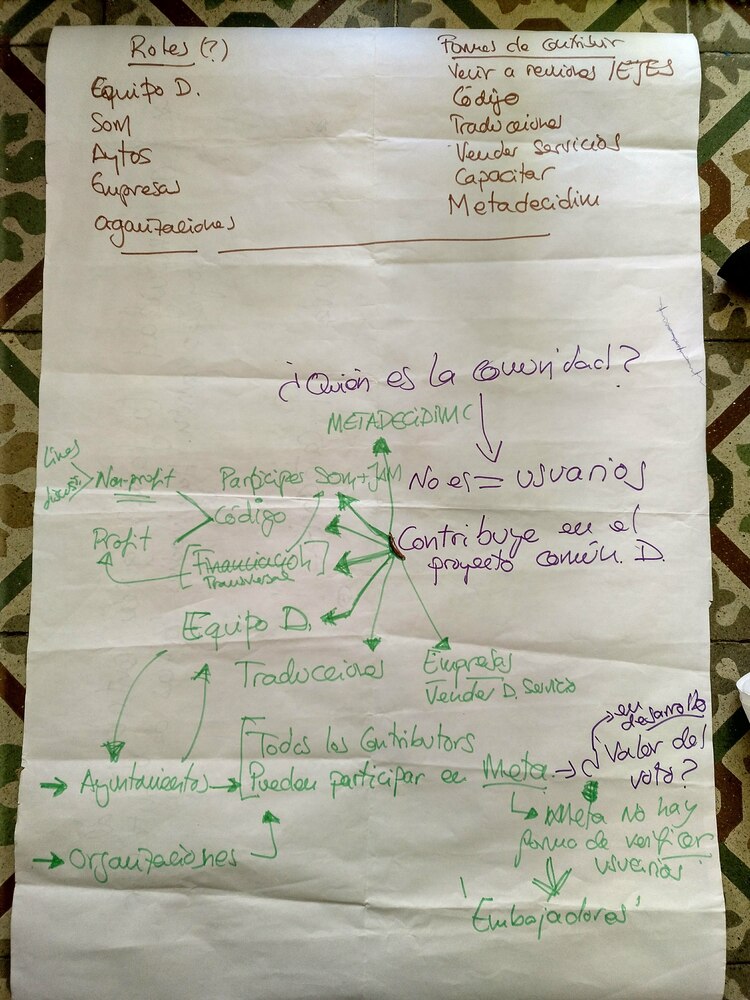 Roles (?)
Equipo D.
Som
Aytos
Empresas
Organizaciones
Formas de contribuir
Venir a reuniones / EJES
Código
Traducciones
Vender servicios
Capacitar
Metadecidim
¿Quién es la comunidad?
METADECIDIM
No es = usuarios
Contribuye en el
proyecto común. D.
Non-profit
Profit
Partícipes Som + JAM
Código
[Financiación]
Transversal
Equipo D.
Traducciones
Empresas
Vender D. Servicio
Ayuntamientos
Organizaciones
Todos los Contributors
Pueden participar en Meta
en
desarrollo
Valor del
voto?
Meta no hay
forma de verificar
usuarios
'Embajadores'